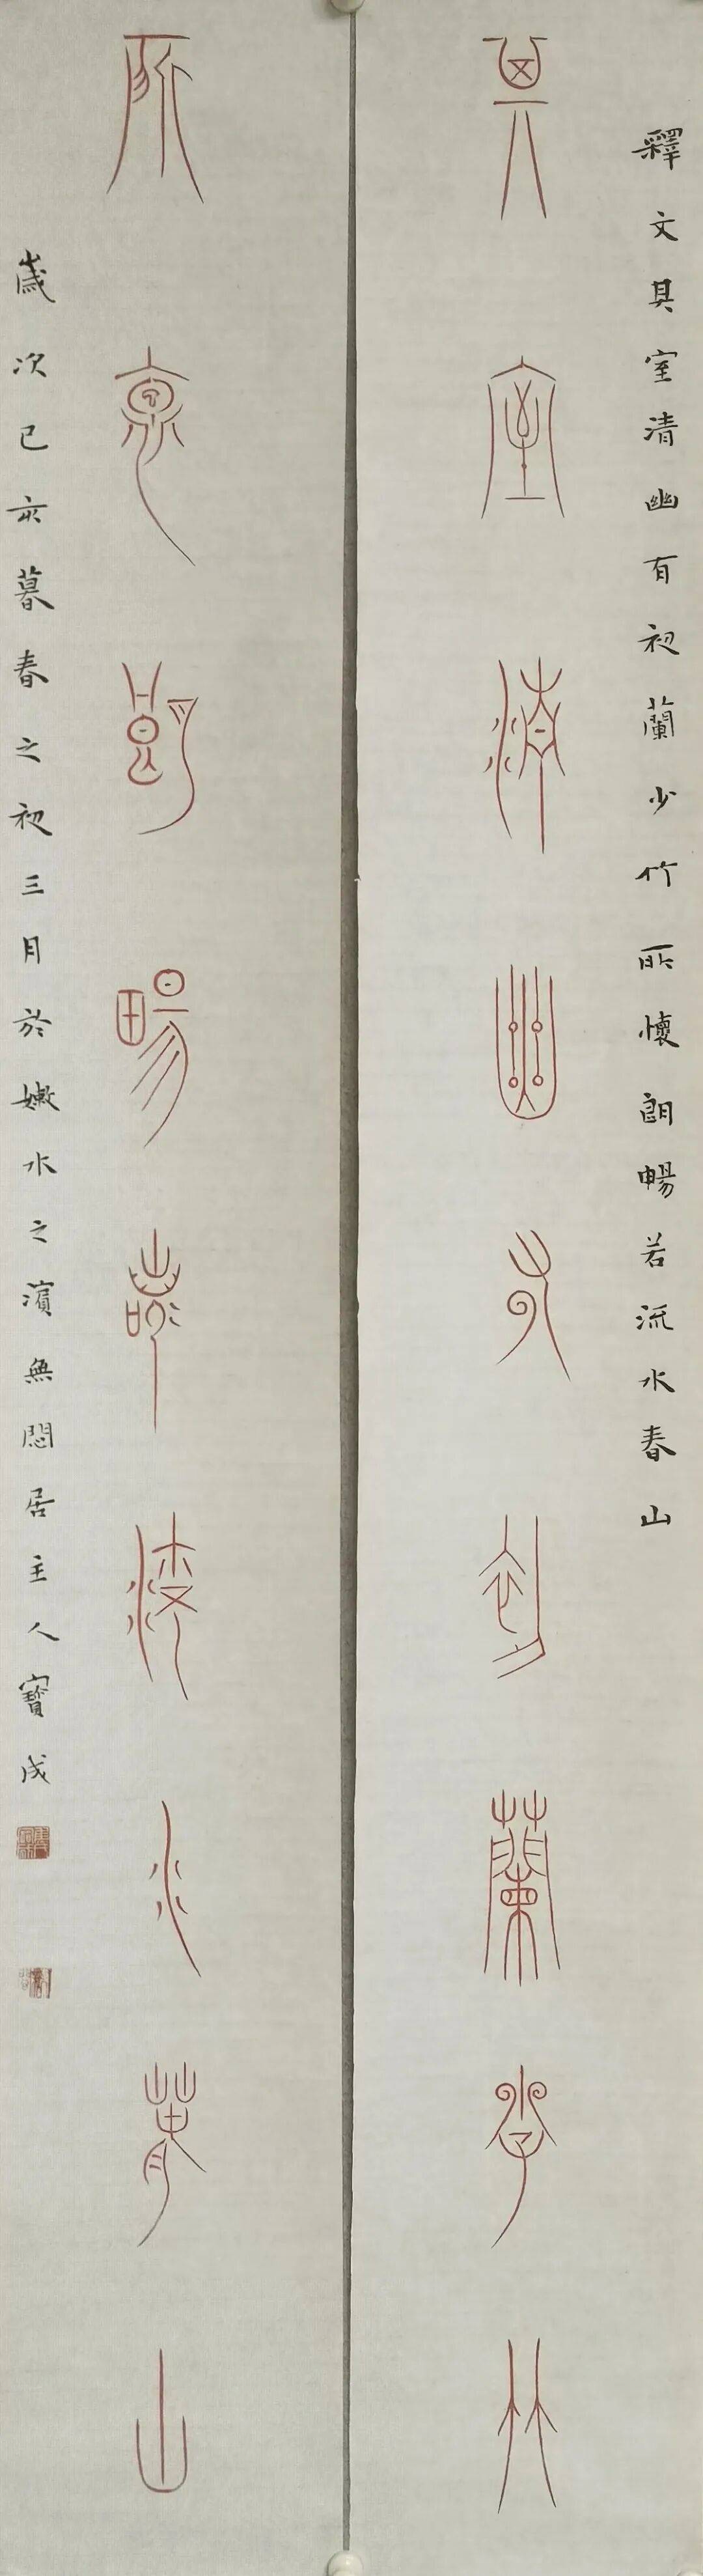 釋文其室清幽有初蘭少竹所懷朗暢若流水春山
其室清幽有初蘭少竹
所懷朗暢若流水春山
歲次己亥暮春之初三月於嫩水之濱無悶居主人寶成